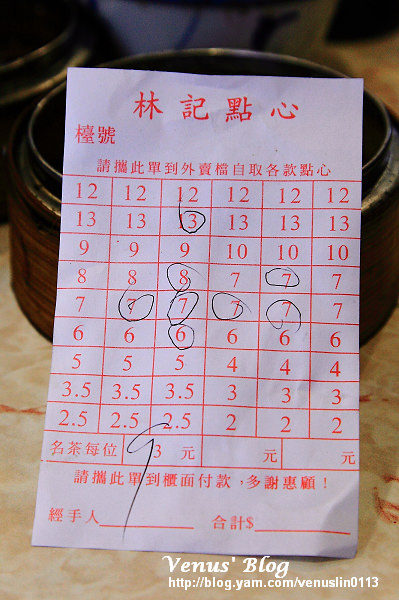 林記點心
檯號
請攜此單到外賣檔自取各款點心
12 12 12 12 12 12
13 13 13 13 13 13
9 9 9 10 10 10
8 8 8 7 7 7
7 7 7 7 7 7
6 6 6 6 6 6
5 5 5 4 4 4
3.5 3.5 3.5 3 3 3
2.5 2.5 2.5 2 2 2
名茶每位 3 元 元 元
9
請攜此單到櫃面付款，多謝惠顧！
經手人________ 合計$________
Venus' Blog
http://blog.yam.com/venuslin0113